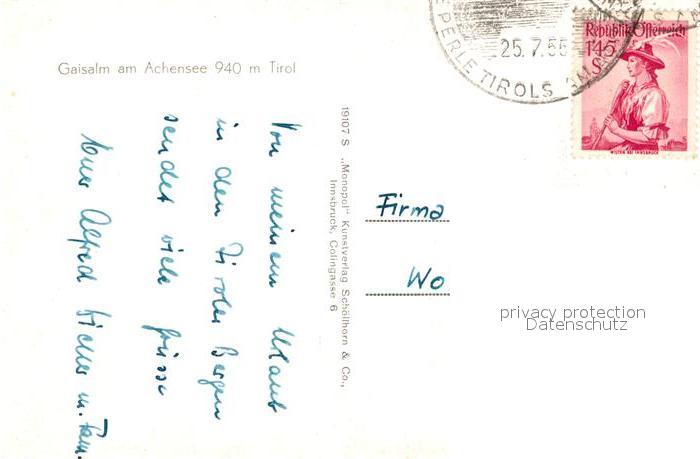 Gaisalm am Achensee 940 m Tirol
Von meinem Urlaub
in den Tiroler Bergen
sendet viele Grüsse
Euer Alfred u. Fam.
19107 S „Monopol" Kunstverlag Schöllhorn & Co.,
Innsbruck, Colingasse 6
PERLE TIROLS AM
25.7.56
Republik Österreich
1.45
S
WILTEN BEI INNSBRUCK
Firma
Wo
privacy protection
Datenschutz